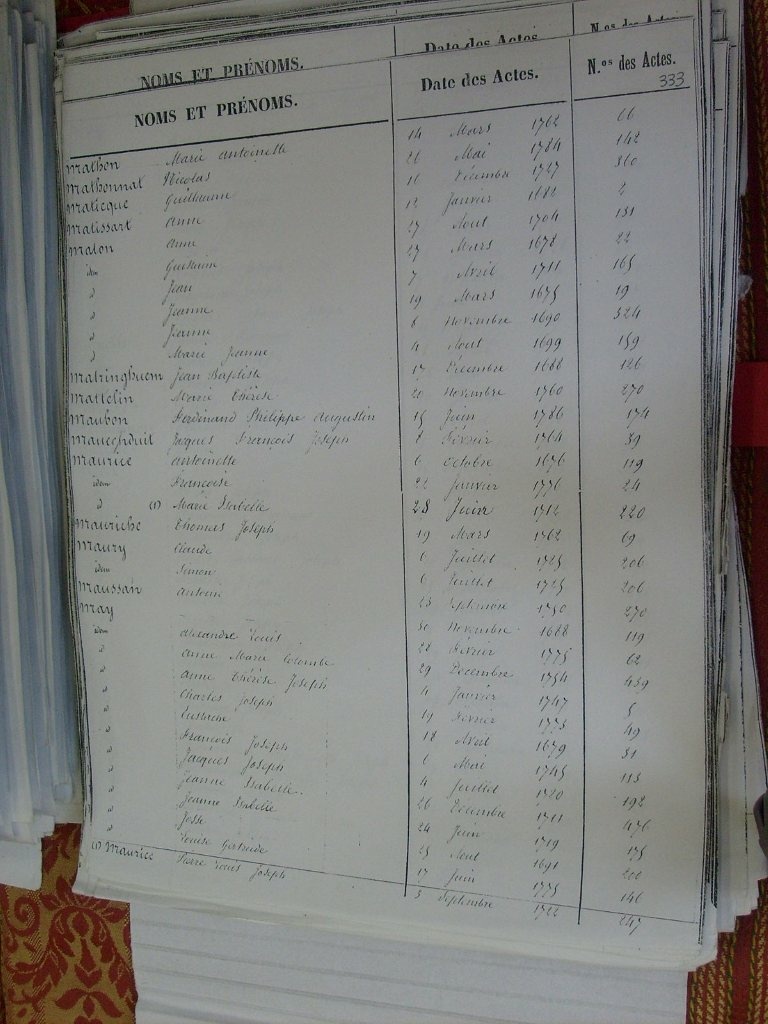 NOMS ET PRÉNOMS. Date des Actes N.os des Actes
NOMS ET PRÉNOMS. Date des Actes. N.os des Actes.
333
Mathon Marie Antoinette 14 Mars 1762 66
Mathonnat Nicolas 21 Mai 1784 142
Maticque Guillaume 16 Décembre 1727 360
Matissart Anne 12 Janvier 1682 2
Maton Anne 27 Aout 1704 131
idem Guillaume 27 Mars 1678 22
d Jean 7 Avril 1711 165
d Jeanne 19 Mars 1675 19
d Jeanne 8 Novembre 1690 324
d Marie Jeanne 4 Aout 1699 159
Matringhuem Jean Baptiste 17 Décembre 1688 126
Mattelin Marie Thérèse 20 Novembre 1760 270
Maubon Ferdinand Philippe Augustin 15 Juin 1786 174
Mauconduit Jacques François Joseph 8 Février 1764 39
Maurice Antoinette 6 Octobre 1676 119
idem Françoise 22 Janvier 1776 24
d (1) Marie Isabelle 28 Juin 1712 220
Mauriche Thomas Joseph 19 Mars 1762 69
Maury Claude 6 Juillet 1725 206
idem Simon 6 Juillet 1725 206
Maussan Antoine 23 Septembre 1750 270
May 30 Novembre 1688 119
idem Alexandre Louis 22 Février 1775 62
d Anne Marie Colombe 29 Décembre 1754 439
d Anne Thérèse Joseph 4 Janvier 1747 5
d Charles Joseph 19 Février 1773 49
d Eustache 18 Avril 1679 31
d François Joseph 1 Mai 1745 113
d Jacques Joseph 4 Juillet 1720 192
d Jeanne Isabelle. 26 Décembre 1711 476
d Jeanne Isabelle 24 Juin 1719 175
d Josse 25 Aout 1691
d Louise Gertrude 17 Juin 1775 146
(1) Maurice Pierre Louis Joseph 3 Septembre 1722 247